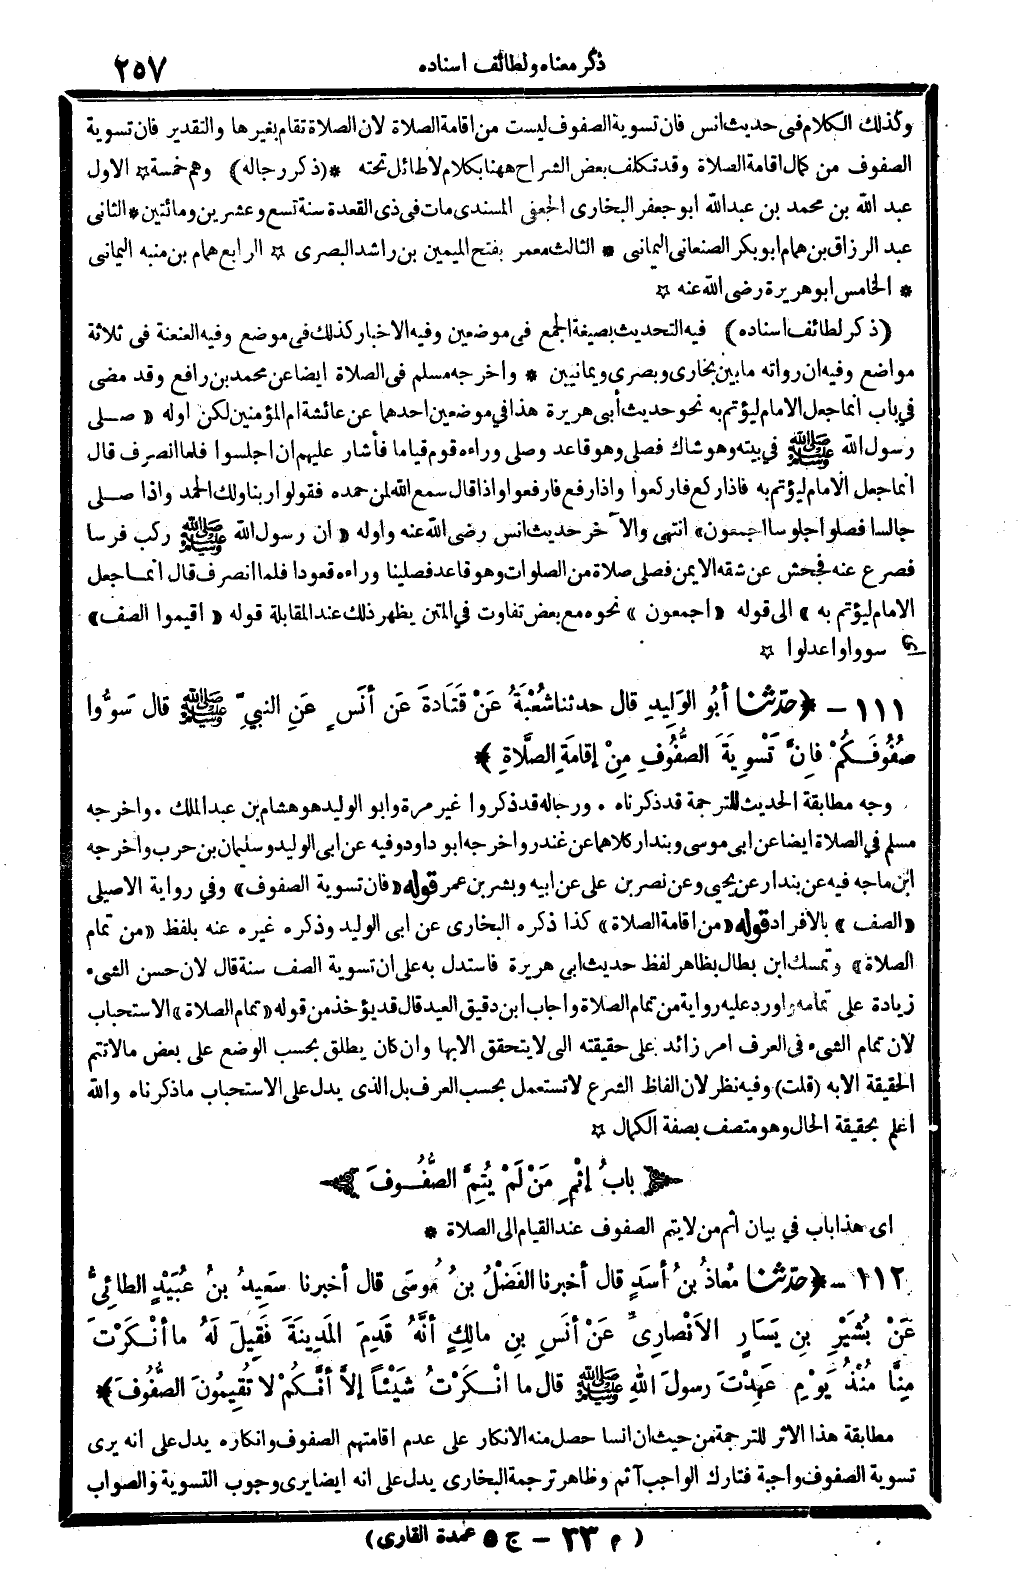 ذكر معناه ولطائف اسناده ٢٥٧
وكذلك الكلام فى حديث انس فان تسوية الصفوف ليست من اقامة الصلاة لان الصلاة تقام بغيرها والتقدير فان تسوية
الصفوف من كمال اقامة الصلاة وقد تكلف بعض الشراح ههنا بكلام لا طائل تحته * (ذكر رجاله) وهم خمسة ☆ الاول
عبد الله بن محمد بن عبدالله ابو جعفر البخارى الجعفى المسندى مات فى ذى القعدة سنة تسع وعشرين ومائتين * الثانى
عبد الرزاق بن همام ابو بكر الصنعانى اليمانى * الثالث معمر بفتح الميمين بن راشد البصرى ☆ الرابع همام بن منبه اليمانى
* الخامس ابو هريرة رضى الله عنه ☆
(ذكر لطائف اسناده) فيه التحديث بصيغة الجمع فى موضعين وفيه الاخبار كذلك فى موضع وفيه العنعنة فى ثلاثة
مواضع وفيه ان رواته ما بين بخارى وبصرى ويمانيين * واخرجه مسلم فى الصلاة ايضا عن محمد بن رافع وقد مضى
فى باب انما جعل الامام ليؤتم به نحو حديث أبى هريرة هذا فى موضعين احدهما عن عائشة ام المؤمنين لكن اوله « صلى
رسول الله ﷺ فى بيته وهو شاك فصلى وهو قاعد وصلى وراءه قوم قياما فأشار عليهم ان اجلسوا فلما انصرف قال
انما جعل الامام ليؤتم به فاذا ركع فاركعوا واذا رفع فارفعوا واذا قال سمع الله لمن حمده فقولوا ربنا ولك الحمد واذا صلى
جالسا فصلوا جلوسا اجمعون» انتهى والآخر حديث انس رضى الله عنه واوله « ان رسول الله ﷺ ركب فرسا
فصرع عنه فجحش عن شقه الايمن فصلى صلاة من الصلوات وهو قاعد فصلينا وراءه قعودا فلما انصرف قال انما جعل
الامام ليؤتم به » الى قوله « اجمعون » نحوه مع بعض تفاوت فى المتن يظهر ذلك عند المقابلة قوله « اقيموا الصف»
اى سووا واعدلوا ☆
١١١ - ﴿حَدَّثَنَا أَبُو الوَلِيدِ قال حدثنا شُعْبَةُ عَنْ قَتَادَةَ عَن أَنَسٍ عَنِ النبيِّ ﷺ قال سَوُّوا
صُفُوفَكُمْ فإِنَّ تَسْوِيَةَ الصُّفُوفِ مِنْ إقامَةِ الصَّلاَةِ ﴾
وجه مطابقة الحديث للترجمة قد ذكرناه . ورجاله قد ذكروا غير مرة وابو الوليد هو هشام بن عبد الملك . واخرجه
مسلم فى الصلاة ايضا عن ابى موسى وبندار كلاهما عن غندر واخرجه ابو داود وفيه عن ابى الوليد وسليمان بن حرب واخرجه
ابن ماجه فيه عن بندار عن يحيى وعن نصر بن على عن ابيه وبشر بن عمر قوله «فان تسوية الصفوف» وفي رواية الاصيلى
«الصف » بالافراد قوله «من اقامة الصلاة» كذا ذكره البخارى عن ابى الوليد وذكره غيره عنه بلفظ «من تمام
الصلاة» وتمسك ابن بطال بظاهر لفظ حديث ابي هريرة فاستدل به على ان تسوية الصف سنة قال لان حسن الشىء
زيادة على تمامه واورد عليه رواية من تمام الصلاة واجاب ابن دقيق العيد قال قد يؤخذ من قوله «تمام الصلاة» الاستحباب
لان تمام الشىء فى العرف امر زائد على حقيقته التى لا يتحقق الا بها وان كان يطلق بحسب الوضع على بعض ما لا تتم
الحقيقة الا به (قلت) وفيه نظر لان الفاظ الشرع لا تستعمل بحسب العرف بل الذى يدل على الاستحباب ما ذكرناه والله
اعلم بحقيقة الحال وهو متصف بصفة الكمال ☆
﴿ بابُ إثْمِ مَنْ لَمْ يُتِمَّ الصُّفُوفَ ﴾
اى هذا باب في بيان اثم من لا يتم الصفوف عند القيام الى الصلاة *
١١٢ - ﴿حَدَّثَنَا مُعَاذُ بنُ أَسَدٍ قال أخبرنا الفَضْلُ بنُ مُوسَى قال أخبرنا سَعِيدُ بنُ عُبَيْدٍ الطائِيُّ
عَنْ بُشَيْرِ بنِ يَسَارٍ الأنْصارِيِّ عَنْ أنَسِ بنِ مالِكٍ أنَّهُ قَدِمَ المَدِينَةَ فَقِيلَ لَهُ ما أنْكَرْتَ
مِنَّا مُنْذُ يَوْمِ عَهِدْتَ رسولَ اللهِ ﷺ قال ما انْكَرْتُ شَيْئاً إلاَّ أنَّكُمْ لا تُقِيمُونَ الصُّفُوفَ﴾
مطابقة هذا الاثر للترجمة من حيث ان انسا حصل منه الانكار على عدم اقامتهم الصفوف وانكاره يدل على انه يرى
تسوية الصفوف واجبة فتارك الواجب آثم وظاهر ترجمة البخارى يدل على انه ايضا يرى وجوب التسوية والصواب
( م ٣٣ - ج ٥ عمدة القارى)